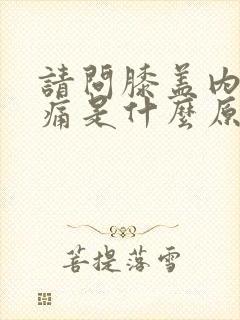 請問膝蓋內
痛是什麼原
菩提落雪